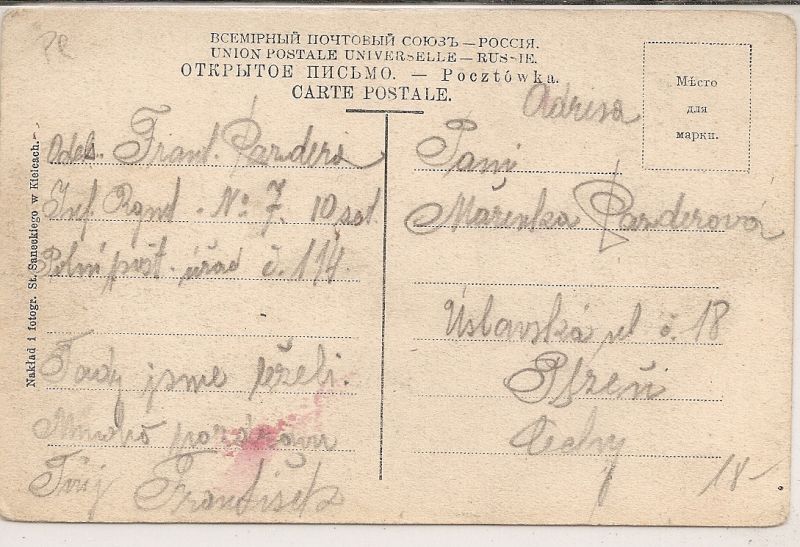 ВСЕМІРНЫЙ ПОЧТОВЫЙ СОЮЗЪ — РОССІЯ.
UNION POSTALE UNIVERSELLE — RUSSIE.
ОТКРЫТОЕ ПИСЬМО. — Pocztówka.
CARTE POSTALE.
Мѣсто
для
марки.
Nakład i fotogr. St. Saneckiego w Kielcach.
Odes. Frant. Pandera
Inf. Rgmt. No 7. 10
Polní pošt. úřad č. 114.
Tady jsme leželi.
Mnoho pozdravu
Tvůj František
Adresa
Paní
Mařenka Panderová
Úslavská ul č. 18
Plzeň
Čechy
18-